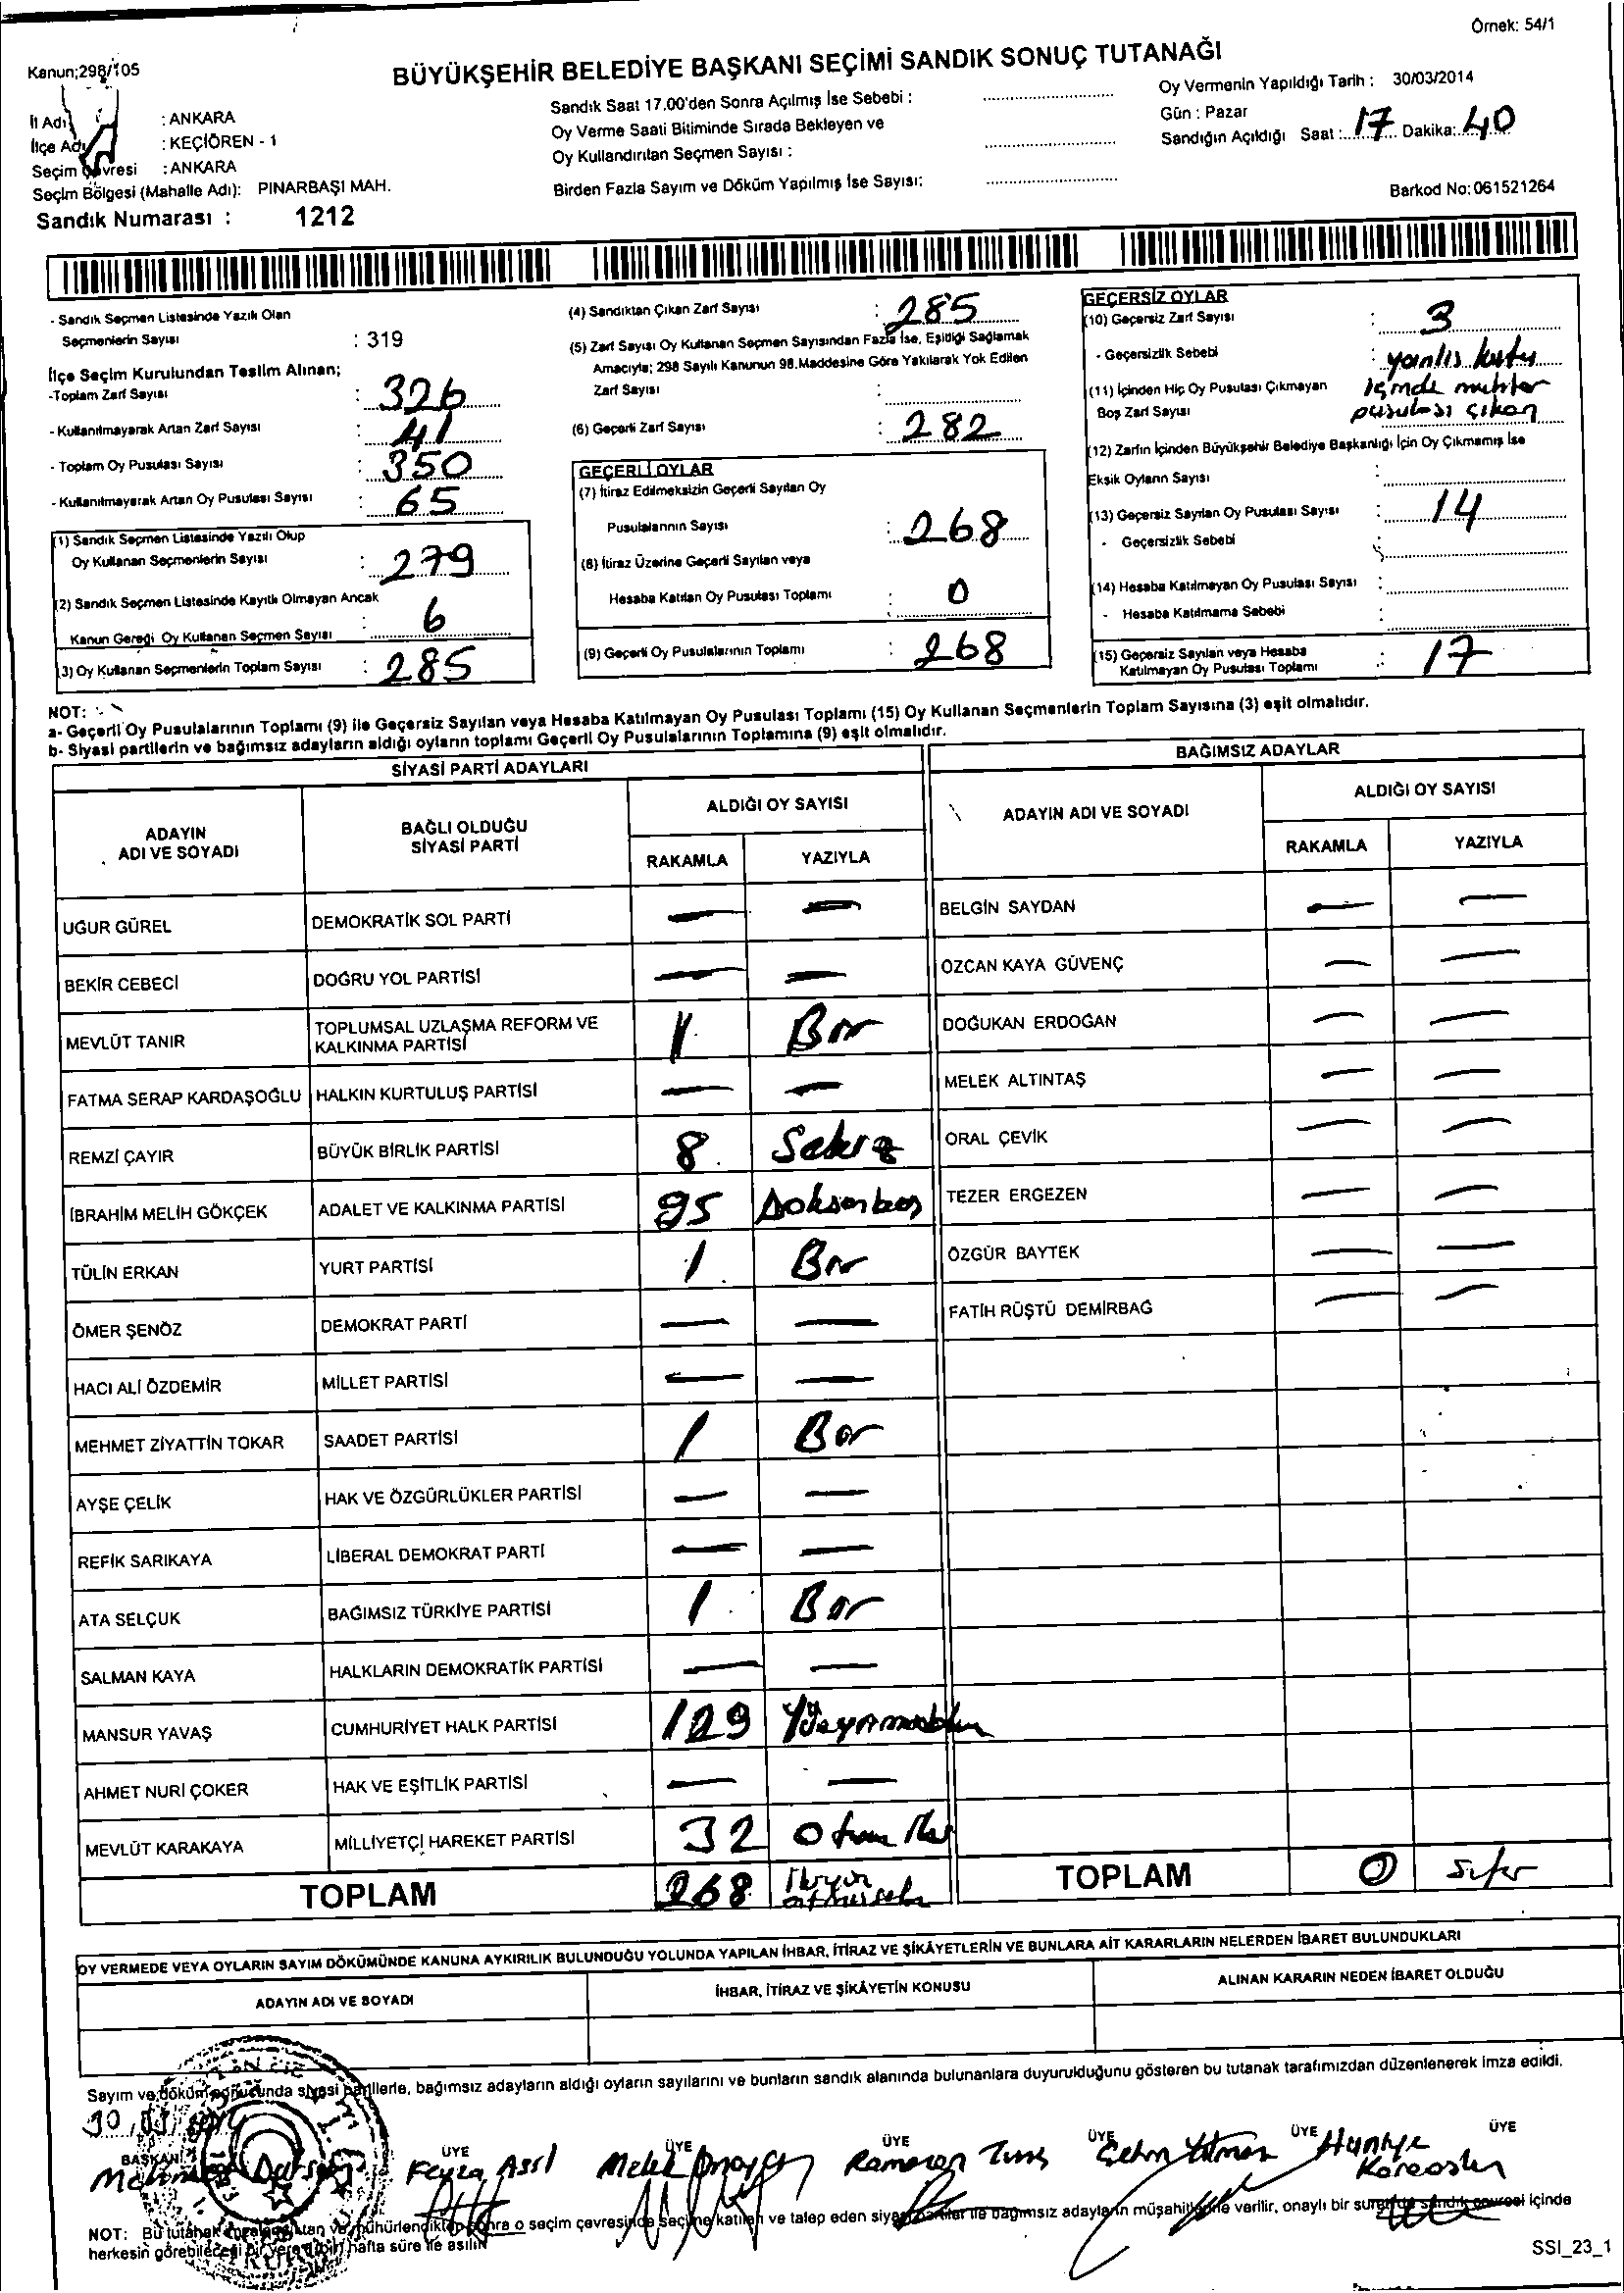 Örnek: 54/1
Kanun;298/105
BÜYÜKŞEHİR BELEDİYE BAŞKANI SEÇİMİ SANDIK SONUÇ TUTANAĞI
İl Adı : ANKARA
İlçe Adı : KEÇİÖREN - 1
Seçim Çevresi : ANKARA
Seçim Bölgesi (Mahalle Adı): PINARBAŞI MAH.
Sandık Numarası : 1212
Sandık Saat 17.00'den Sonra Açılmış İse Sebebi :
Oy Verme Saati Bitiminde Sırada Bekleyen ve
Oy Kullandırılan Seçmen Sayısı :
Birden Fazla Sayım ve Döküm Yapılmış İse Sayısı:
Oy Vermenin Yapıldığı Tarih : 30/03/2014
Gün : Pazar
Sandığın Açıldığı Saat : 17 Dakika: 40
Barkod No: 061521264
- Sandık Seçmen Listesinde Yazılı Olan
Seçmenlerin Sayısı : 319
İlçe Seçim Kurulundan Teslim Alınan;
-Toplam Zarf Sayısı : 326
- Kullanılmayarak Artan Zarf Sayısı : 41
- Toplam Oy Pusulası Sayısı : 350
- Kullanılmayarak Artan Oy Pusulası Sayısı : 65
(1) Sandık Seçmen Listesinde Yazılı Olup
Oy Kullanan Seçmenlerin Sayısı : 279
(2) Sandık Seçmen Listesinde Kayıtlı Olmayan Ancak
Kanun Gereği Oy Kullanan Seçmen Sayısı : 6
(3) Oy Kullanan Seçmenlerin Toplam Sayısı : 285
(4) Sandıktan Çıkan Zarf Sayısı : 285
(5) Zarf Sayısı Oy Kullanan Seçmen Sayısından Fazla İse, Eşitliği Sağlamak
Amacıyla; 298 Sayılı Kanunun 98.Maddesine Göre Yakılarak Yok Edilen
Zarf Sayısı :
(6) Geçerli Zarf Sayısı : 282
GEÇERLİ OYLAR
(7) İtiraz Edilmeksizin Geçerli Sayılan Oy
Pusulalarının Sayısı : 268
(8) İtiraz Üzerine Geçerli Sayılan veya
Hesaba Katılan Oy Pusulası Toplamı : 0
(9) Geçerli Oy Pusulalarının Toplamı : 268
GEÇERSİZ OYLAR
(10) Geçersiz Zarf Sayısı : 3
- Geçersizlik Sebebi : yanlış kutu
(11) İçinden Hiç Oy Pusulası Çıkmayan içinde muhtar
Boş Zarf Sayısı pusulası çıkan
(12) Zarfın İçinden Büyükşehir Belediye Başkanlığı İçin Oy Çıkmamış İse
Eksik Oyların Sayısı :
(13) Geçersiz Sayılan Oy Pusulası Sayısı : 14
- Geçersizlik Sebebi
(14) Hesaba Katılmayan Oy Pusulası Sayısı :
- Hesaba Katılmama Sebebi :
(15) Geçersiz Sayılan veya Hesaba
Katılmayan Oy Pusulası Toplamı : 17
NOT:
a- Geçerli Oy Pusulalarının Toplamı (9) ile Geçersiz Sayılan veya Hesaba Katılmayan Oy Pusulası Toplamı (15) Oy Kullanan Seçmenlerin Toplam Sayısına (3) eşit olmalıdır.
b- Siyasi partilerin ve bağımsız adayların aldığı oyların toplamı Geçerli Oy Pusulalarının Toplamına (9) eşit olmalıdır.
SİYASİ PARTİ ADAYLARI
ADAYIN ADI VE SOYADI
BAĞLI OLDUĞU SİYASİ PARTİ
ALDIĞI OY SAYISI
RAKAMLA YAZIYLA
UĞUR GÜREL DEMOKRATİK SOL PARTİ — —
BEKİR CEBECİ DOĞRU YOL PARTİSİ — —
MEVLÜT TANIR TOPLUMSAL UZLAŞMA REFORM VE KALKINMA PARTİSİ 1 Bir
FATMA SERAP KARDAŞOĞLU HALKIN KURTULUŞ PARTİSİ — —
REMZİ ÇAYIR BÜYÜK BİRLİK PARTİSİ 8 Sekiz
İBRAHİM MELİH GÖKÇEK ADALET VE KALKINMA PARTİSİ 95 Doksanbeş
TÜLİN ERKAN YURT PARTİSİ 1 Bir
ÖMER ŞENÖZ DEMOKRAT PARTİ — —
HACI ALİ ÖZDEMİR MİLLET PARTİSİ — —
MEHMET ZİYATTİN TOKAR SAADET PARTİSİ 1 Bir
AYŞE ÇELİK HAK VE ÖZGÜRLÜKLER PARTİSİ — —
REFİK SARIKAYA LİBERAL DEMOKRAT PARTİ — —
ATA SELÇUK BAĞIMSIZ TÜRKİYE PARTİSİ 1 Bir
SALMAN KAYA HALKLARIN DEMOKRATİK PARTİSİ — —
MANSUR YAVAŞ CUMHURİYET HALK PARTİSİ 129
AHMET NURİ ÇOKER HAK VE EŞİTLİK PARTİSİ — —
MEVLÜT KARAKAYA MİLLİYETÇİ HAREKET PARTİSİ 32 Otuz iki
TOPLAM 268 İkiyüz altmışsekiz
BAĞIMSIZ ADAYLAR
ADAYIN ADI VE SOYADI
ALDIĞI OY SAYISI
RAKAMLA YAZIYLA
BELGİN SAYDAN — —
ÖZCAN KAYA GÜVENÇ — —
DOĞUKAN ERDOĞAN — —
MELEK ALTINTAŞ — —
ORAL ÇEVİK — —
TEZER ERGEZEN — —
ÖZGÜR BAYTEK — —
FATİH RÜŞTÜ DEMİRBAĞ — —
TOPLAM 0 Sıfır
OY VERMEDE VEYA OYLARIN SAYIM DÖKÜMÜNDE KANUNA AYKIRILIK BULUNDUĞU YOLUNDA YAPILAN İHBAR, İTİRAZ VE ŞİKÂYETLERİN VE BUNLARA AİT KARARLARIN NELERDEN İBARET BULUNDUKLARI
ADAYIN ADI VE SOYADI İHBAR, İTİRAZ VE ŞİKÂYETİN KONUSU ALINAN KARARIN NEDEN İBARET OLDUĞU
Sayım ve döküm sonucunda siyasi partilerle, bağımsız adayların aldığı oyların sayılarını ve bunların sandık alanında bulunanlara duyurulduğunu gösteren bu tutanak tarafımızdan düzenlenerek imza edildi.
30/03/2014
BAŞKAN ÜYE ÜYE ÜYE ÜYE ÜYE ÜYE
Feyza Asıl Melek Ramazan Tunç Çetin Yılmaz Huriye
Karaaslan
NOT: Bu tutanak imzalandıktan ve mühürlendikten sonra o seçim çevresinde seçime katılan ve talep eden siyasi partiler ile bağımsız adayların müşahitlerine verilir, onaylı bir sureti de sandık çevresi içinde
herkesin görebileceği bir yere bir hafta süre ile asılır.
SSI_23_1